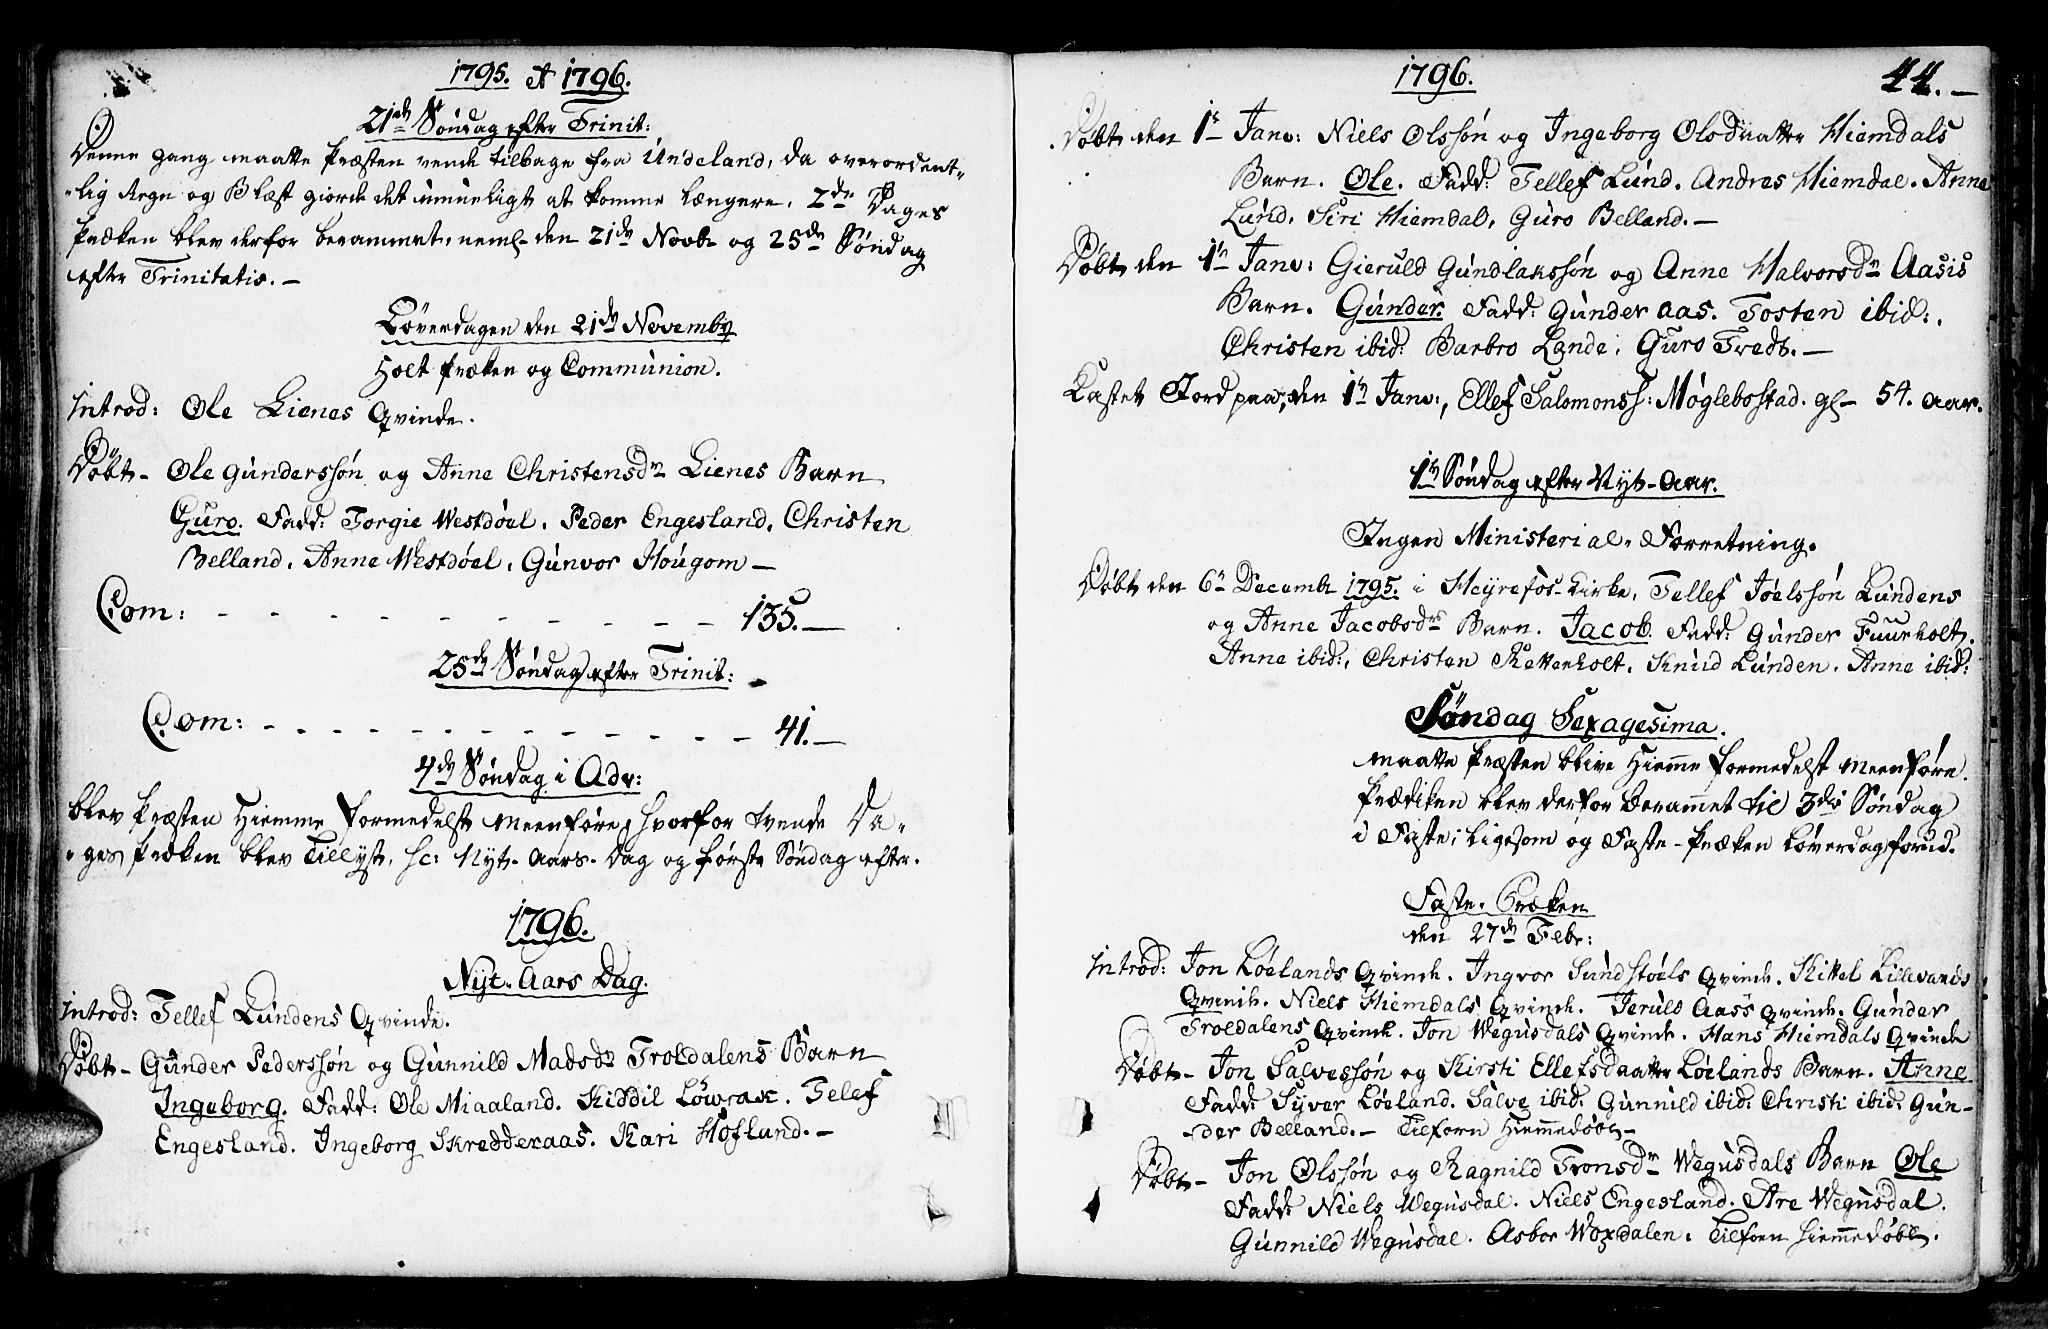 1795. et 1796.
21de Søndag efter Trinit:
Denne gang maatte Præsten vende tilbage fra Undeland, da overordent-
-lig Regn og Blæst giorde det umueligt at komme længere. 2de Dages
Præken blev derfor berammet, neml- den 21de Novbr og 25de Søndag
efter Trinitatis.-
Løverdagen den 21de Novembr
Holt Præken og Communion.
Introd: Ole Lienes Qvinde.
Døbt- Ole Gunderssøn og Anne Christensdr Lienes Barn
Guro. Fadd: Torgie Westdøel. Peder Engesland. Christen
Belland. Anne Westdøel. Gunvor Hougom-
Com: - - - - - - - - - - - 135.-
25de Søndag efter Trinit:
Com: - - - - - - - - - - - 41.-
4de Søndag i Adv:
blev Præsten Hiemme formedelst Meenføre, hvorfor tvende Da-
-ges Præken blev Tillyst, sc: Nyt-Aars-Dag og første Søndag efter.
1796.
Nyt-Aars Dag.
Introd: Tellef Lundens Qvinde.
Døbt- Gunder Pederssøn og Gunnild Madsdr Troldalens Barn
Ingeborg. Fadd: Ole Miaaland. Kiddil Løwraк. Telef
Engesland. Ingeborg Skredderaas. Kari Hofland.-
1796.
44.-
Døbt den 1te Janv: Niels Olssøn og Ingeborg Olsdaatter Hiemdals
Barn. Ole. Fadd: Tellef Lund. Andres Hiemdal. Anne
Lund. Siri Hiemdal. Guro Belland.-
Døbt den 1te Janv: Gieruld Gundlakssøn og Anne Halvorsdr Aasis
Barn. Gunder. Fadd: Gunder Aas. Tosten ibid:.
Christen ibid: Barbro Lande. Guro Tredt.-
Kastet Jord paa, den 1te Janv:, Ellef Salomonss: Møglebostad. gl- 54. aar.
1te Søndag efter Nyt-Aar.
Ingen Ministerial-Forretning.
Døbt den 6te Decembr 1795. i Heyrefos-Kirke, Tellef Joelssøn Lundens
og Anne Jacobsdrs Barn. Jacob. Fadd: Gunder Fuurholt.
Anne ibid:, Christen Rettenholt. Knud Lunden. Anne ibid:
Søndag Sexagesima.
maatte Præsten blive Hiemme formedelst Meenføre.
Prædiken blev derfor berammet til 3die Søndag
i Faste; ligesom og Faste-Præken Løverdag forud.
Faste-Præken
den 27de Febr:
Introd: Jon Løelands Qvinde. Ingvor Sundstøels Qvinde. Kittel Lillevands
Qvinde. Niels Hiemdals Qvinde. Jeruld Aas's Qvinde. Gunder
Troldalens Qvinde. Jon Wegusdals Qvinde. Hans Hiemdals Qvinde
Døbt- Jon Salvessøn og Kirsti Ellefsdaatter Løelands Barn. Anne
Fadd: Syver Løeland. Salve ibid: Gunnild ibid: Christi ibid: Gun-
-der Belland.- Tilforn Hiemmedøbt-
Døbt- Jon Olssøn og Ragnild Tronsdr Wegusdals Barn Ole
Fadd: Niels Wegusdal. Niels Engesland. Are Wegusdal.
Gunnild Wegusdal. Asbor Woxdalen. Tilforn Hiemmedøbt.